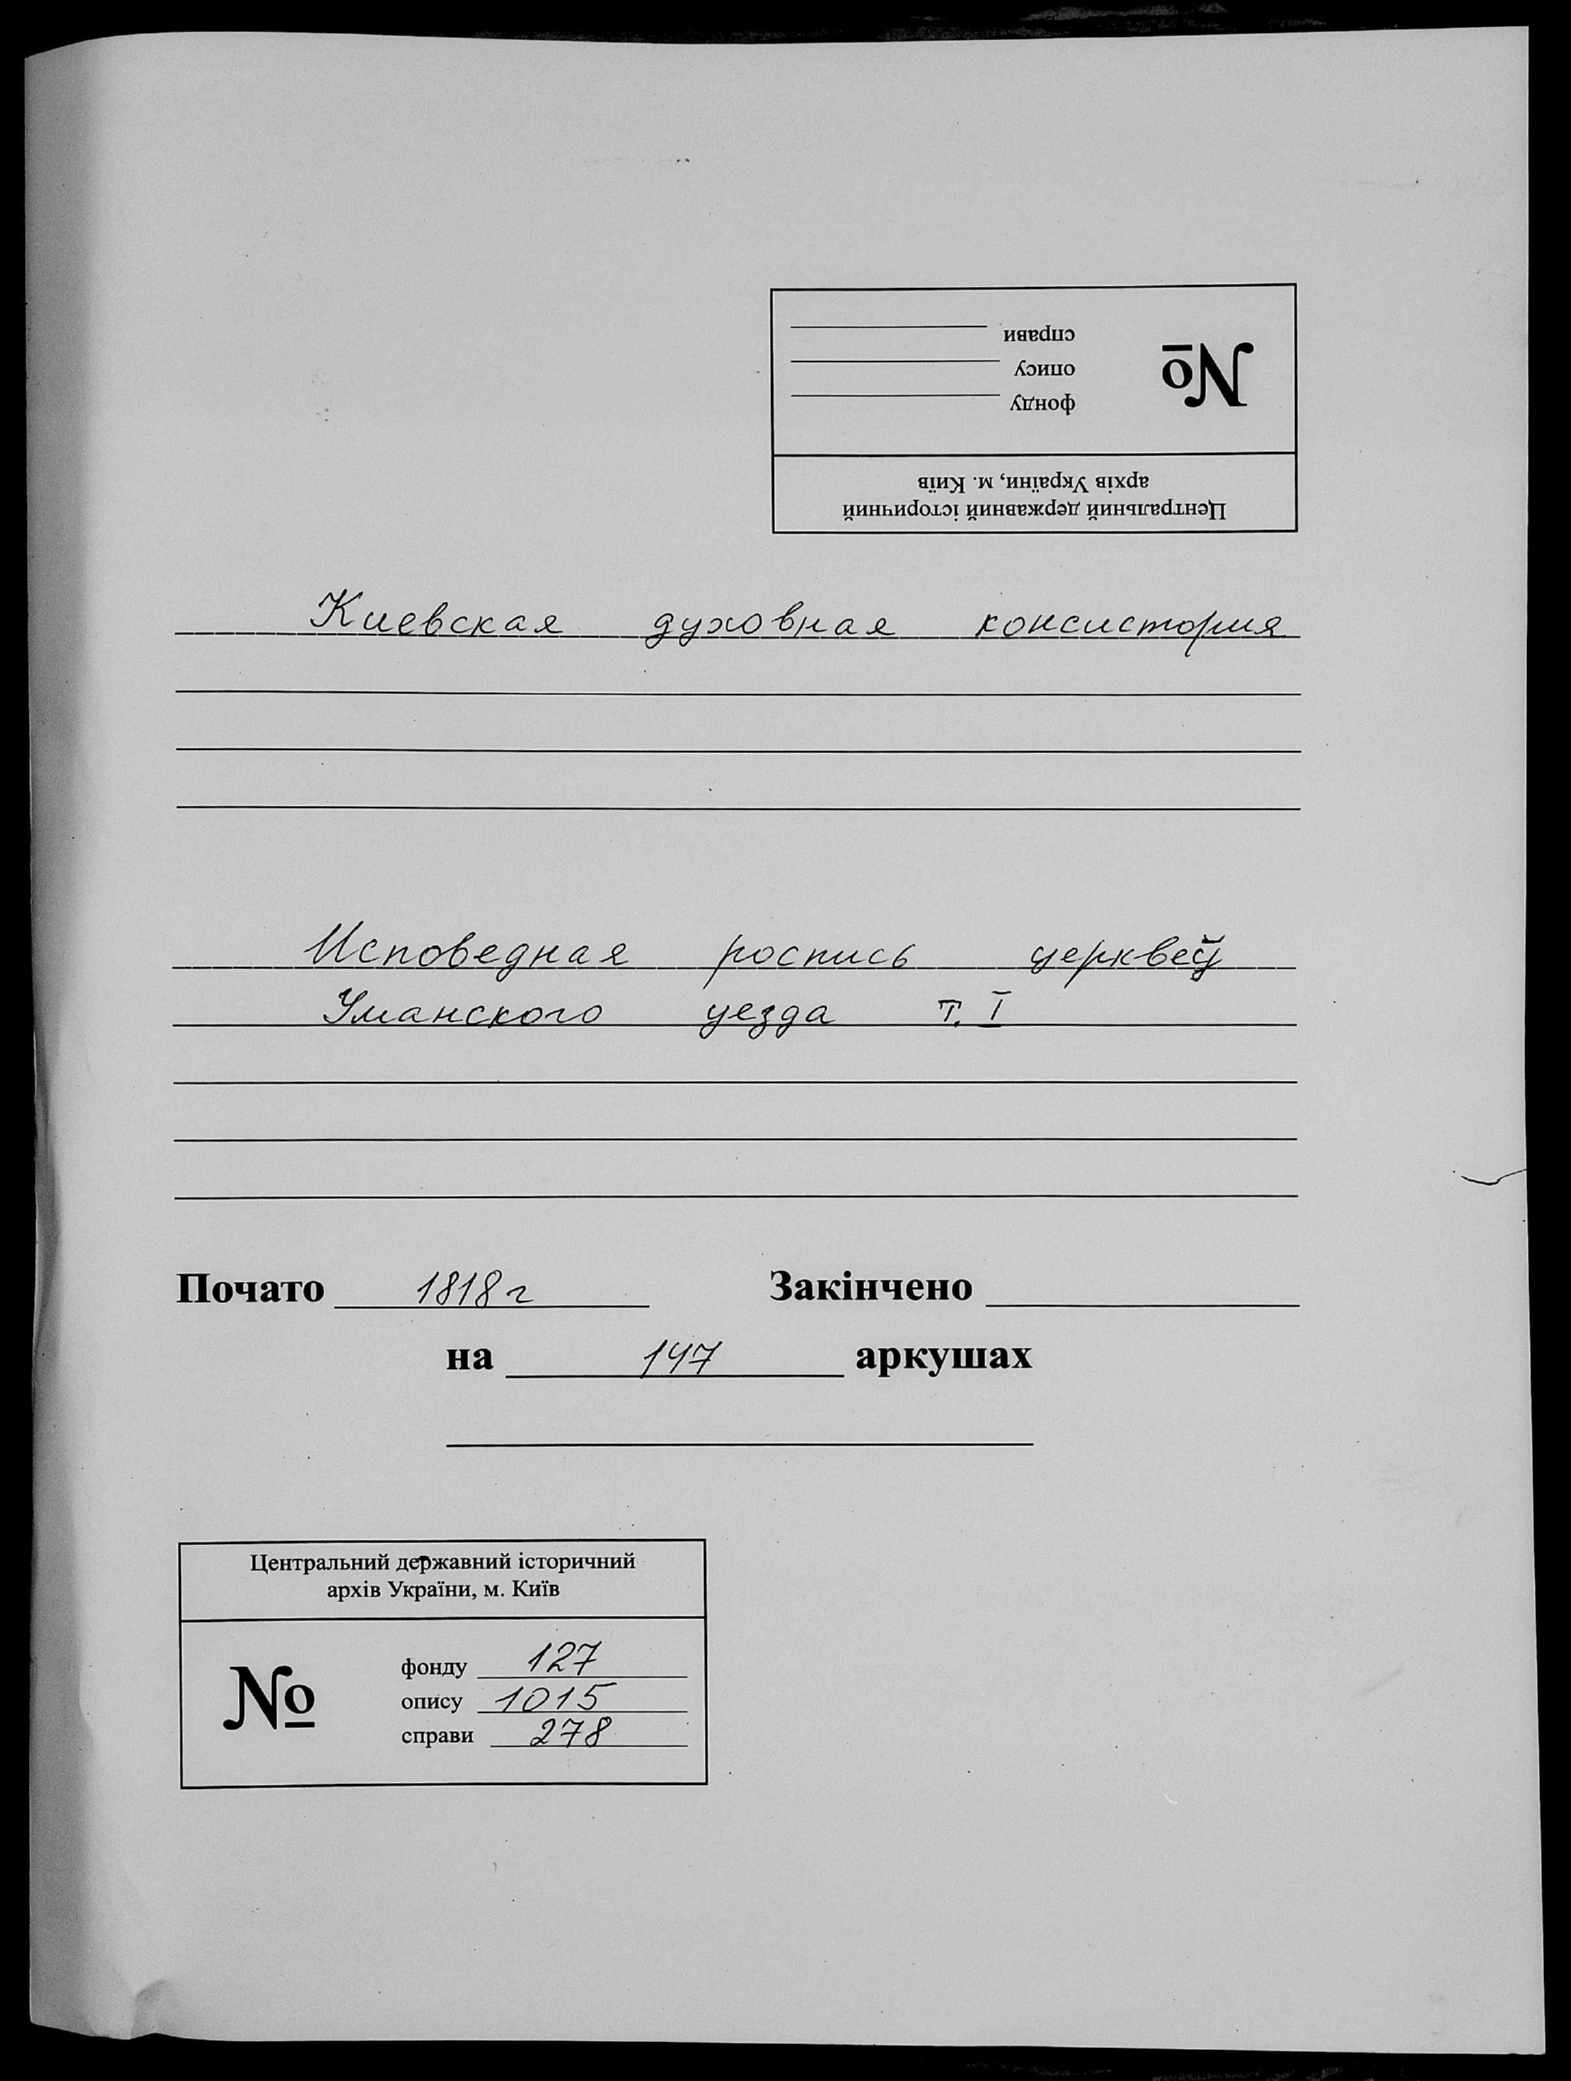 справи
опису
фонду
№
Центральний державний історичний
архів України, м. Київ
Киевская духовная консистория
Исповедная роспись церквей
Уманского уезда т. I
Почато 1818 г Закінчено
на 147 аркушах
Центральний державний історичний
архів України, м. Київ
№
фонду 127
опису 1015
справи 278